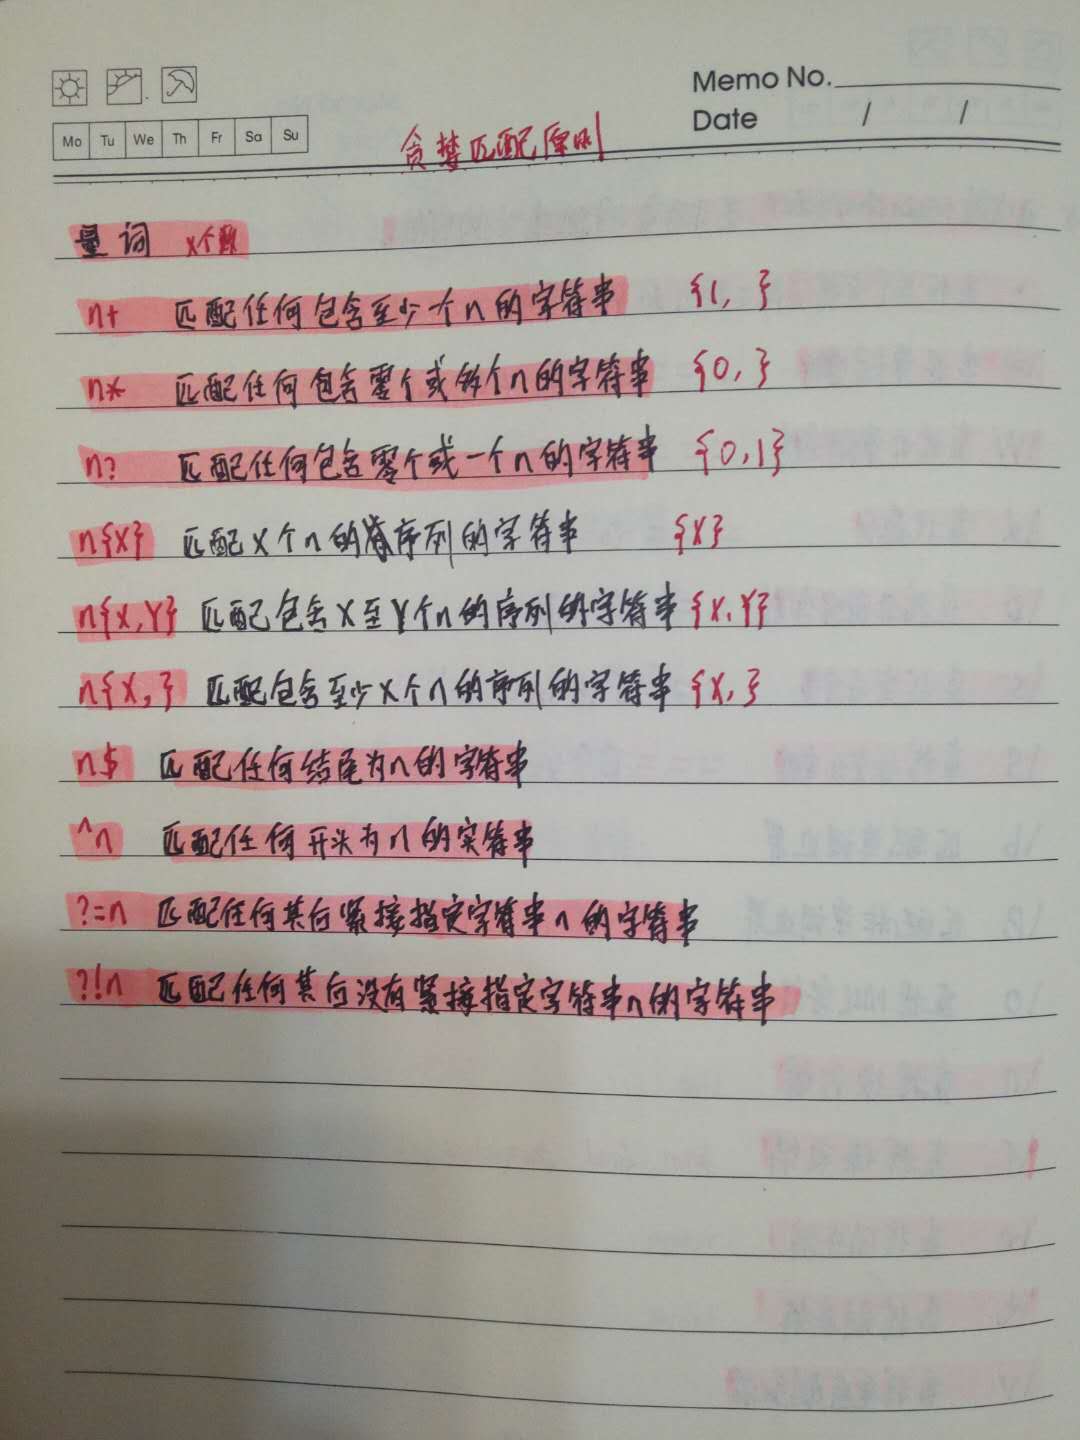 Memo No.
Date / /
Mo Tu We Th Fr Sa Su
贪婪匹配原则
量词 x个数
n+ 匹配任何包含至少一个n的字符串 {1, }
n* 匹配任何包含零个或多个n的字符串 {0, }
n? 匹配任何包含零个或一个n的字符串 {0,1}
n{X} 匹配X个n的序列的字符串 {X}
n{X,Y} 匹配包含X至Y个n的序列的字符串 {X,Y}
n{X, } 匹配包含至少X个n的序列的字符串 {X, }
n$ 匹配任何结尾为n的字符串
^n 匹配任何开头为n的字符串
?=n 匹配任何其后紧接指定字符串n的字符串
?!n 匹配任何其后没有紧接指定字符串n的字符串